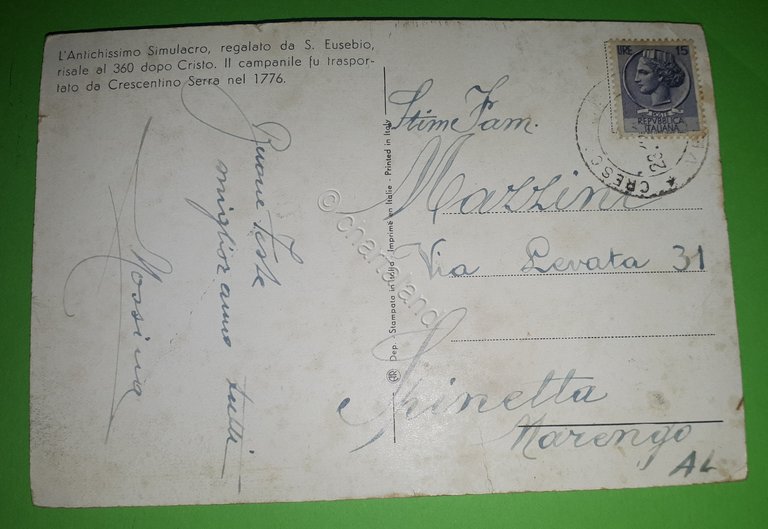 L'Antichissimo Simulacro, regalato da S. Eusebio,
risale al 360 dopo Cristo. Il campanile fu traspor-
tato da Crescentino Serra nel 1776.
Buone Feste
miglior anno
tutti
Mossina
Dep. - Stampata in Italia - Imprimé en Italie - Printed in Italy
LIRE 15
POSTE
REPVBBLICA
ITALIANA
CRESC
Stim.e Fam.
Mazzini
Via Levata 31
Spinetta
Marengo
AL
© charta land